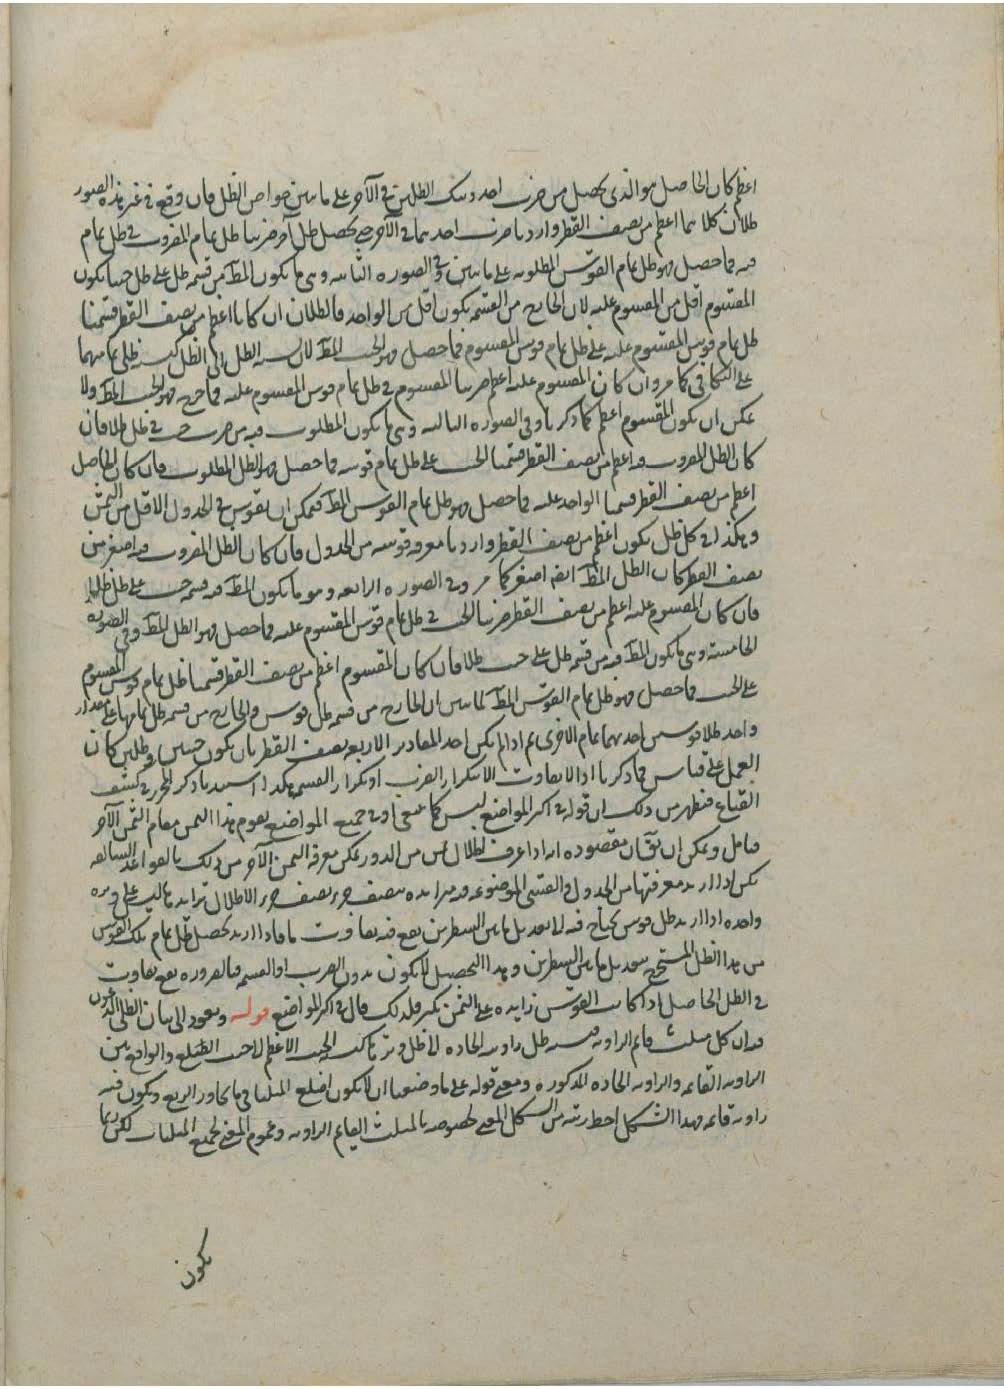 اعظم كان الحاصل هو الذى يحصل من ضرب احد ذينك الظلين فى الآخر على ما تبين خواص الظل فان وقع فى غير هذه الصور
ظلان كلاهما اعظم من نصف القطر واردنا ضرب احدهما فى الآخر حتى يحصل ظل آخر ضربنا ظل تمام المضروب فى ظل تمام
فيه فما حصل فهو ظل تمام القوس المطلوبة على ما تبين وفى الصورة الثانية وهى ما يكون المط من قسمة ظل على ظل حتما يكون
المقسوم اقل من المقسوم عليه لان الخارج من القسمة يكون اقل من الواحد فالظلان ان كانا اعظم من نصف القطر قسمنا
ظل تمام قوس المقسوم عليه على ظل تمام قوس المقسوم فما حصل فهو الجيب المط لان نسبة الظل الى الظل كنسبة ظلى تماميهما
على التكافى كما مر وان كان المقسوم عليه اعظم ضربنا المقسوم فى ظل تمام قوس المقسوم عليه فما خرج فهو الجيب المط ولا
يمكن ان يكون المقسوم اعظم كما ذكرنا وفى الصورة الثالثة وهى ما يكون المطلوب فيه من ضرب جيب فى ظل ظلا فان
كان الظل المضروب فيه اعظم من نصف القطر قسمنا الجيب على ظل تمام قوسه فما حصل فهو الظل المطلوب فان كان الحاصل
اعظم من نصف القطر قسمنا الواحد عليه فما حصل فهو ظل تمام القوس المط فيمكن ان يقوس فى الجدول الاقل من الثمن
وهكذا فى كل ظل يكون اعظم من نصف القطر واردنا معرفة قوسه من الجدول فان كان الظل المضروب فيه اصغر من
نصف القطر كان الظل المط ايضا اصغر كما مر وفى الصورة الرابعة وهو ما يكون المط فيه قسمة جيب على ظل ظلا
فان كان المقسوم عليه اعظم من نصف القطر ضربنا الجيب فى ظل تمام قوس المقسوم عليه فما حصل فهو الظل المط وفى الصورة
الخامسة وهى ما يكون المط فيه من قسمة ظل على جيب ظلا فان كان المقسوم اعظم من نصف القطر قسمنا ظل تمام قوس المقسوم
على الجيب فما حصل فهو ظل تمام القوس المط لما تبين ان الخارج من قسمة ظل قوس والخارج من قسمة ظل تمامها على مقدار
واحد ظلا قوسين احدهما تمام الاخرى ثم اذا لم يكن احد المقادير الاربعة نصف القطر بان يكون جيبين وظلين كان
العمل على قياس ما ذكرنا اذ لا تفاوت الا بتكرار الضرب او تكرار القسمة هكذا ذكر المحرر فى كشف
القناع فظهر من ذلك ان قوله فى اكثر المواضع ليس كما ينبغى اذ فى جميع المواضع يقوم هذا الثمن مقام الثمن الآخر
فتامل ويمكن ان يقال مقصوده انه اذا عرف اظلال ثمن من الدور يمكن معرفة الثمن الآخر من ذلك بالقواعد السالفة
لكن اذا اريد معرفتها من الجدول والقسى الموضوعة فيه متزايدة بنصف جزء نصف جزء والاظلال تزايدها ليس على وتيرة
واحدة اذا اريد ظل قوس يحتاج فيه الى تعديل ما بين السطرين يقع فيه تفاوت ما فاذا اريد تحصيل ظل تمام تلك القوس
من هذا الظل المستخرج بتعديل ما بين السطرين وهذا التحصيل لا يكون بدون الضرب او القسمة فبالضرورة يقع تفاوت
فى الظل الحاصل اذا كانت القوس زايدة على الثمن بكثير فلذلك قال فى اكثر المواضع قوله ونعود الى بيان الظلى
فى ان كل مثلث قايم الزاوية نسبة ظل زاويته الحادة الى ظل وترها كنسبة الجيب الاعظم الى جيب الضلع والواقع بين
الزاوية القائمة والزاوية الحادة المذكورة ومعنى قوله على ما وضعنا ان لا يكون اضلاع المثلثات مما يجاوز الربع ويكون فيه
زاوية قائمة فهذا الشكل احط رتبة من الشكل المغنى لخصوصه بالمثلث القايم الزاوية وعموم المغنى لجميع المثلثات لكن ربما
يكون